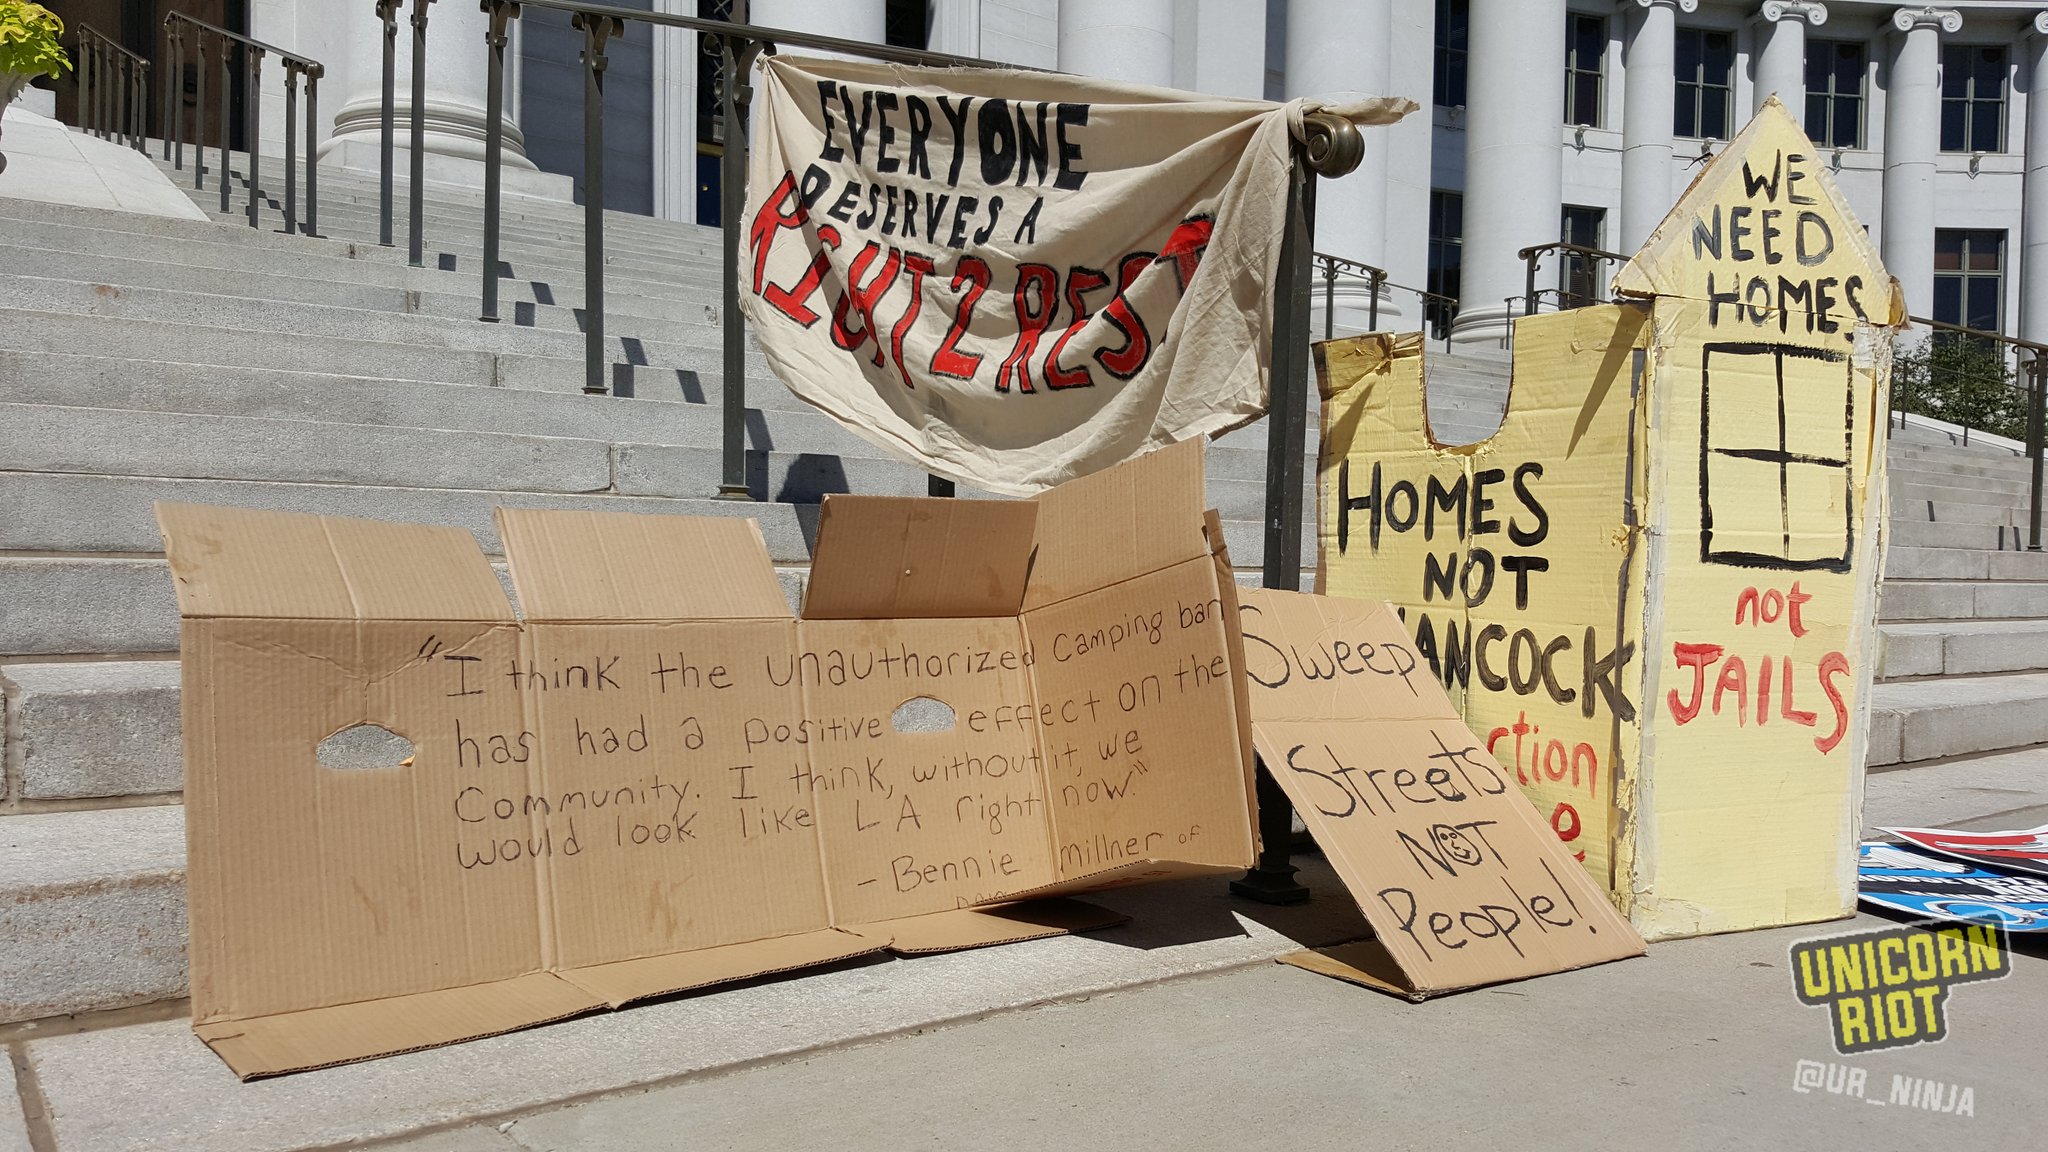 EVERYONE
DESERVES A
RIGHT 2 REST
"I think the unauthorized camping ban
has had a positive effect on the
Community. I think, without it, we
would look like LA right now."
- Bennie Millner of
Sweep
Streets
NOT
People!
HOMES
NOT
HANCOCK
WE
NEED
HOMES
not
JAILS
UNICORN
RIOT
@UR_NINJA